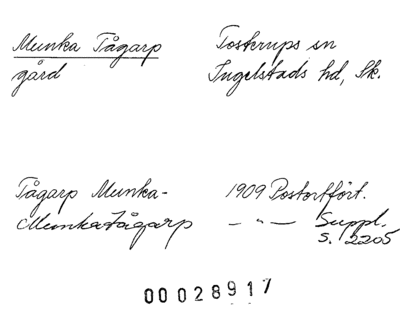 Munka Tågarp Toskrups sn
gård Ingelstads hd, Sk.
Tågarp Munka- 1909 Postortfört.
Munkatågarp — " — Suppl.
S. 2205
00028917